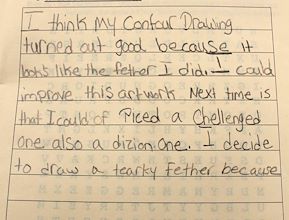 I think my Contour Drawing
turned out good because it
looks like the fether I did. I could
improve this artwork Next time is
that I could of Piced a Chellenged
one also a dizion one. I decide
to draw a tearky fether because